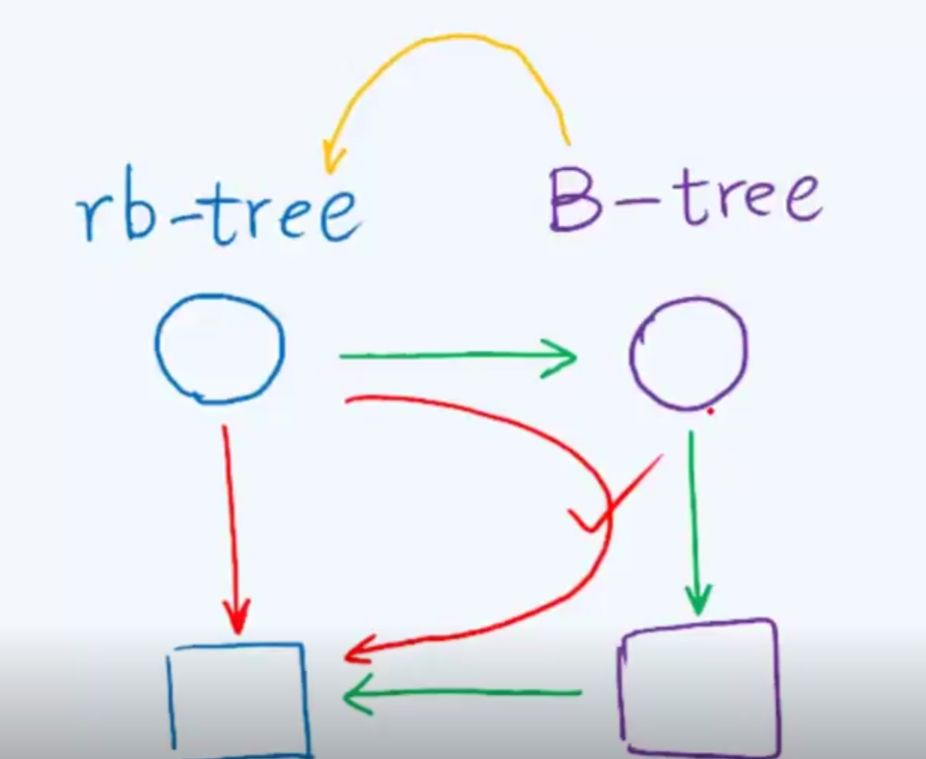 rb-tree B-tree